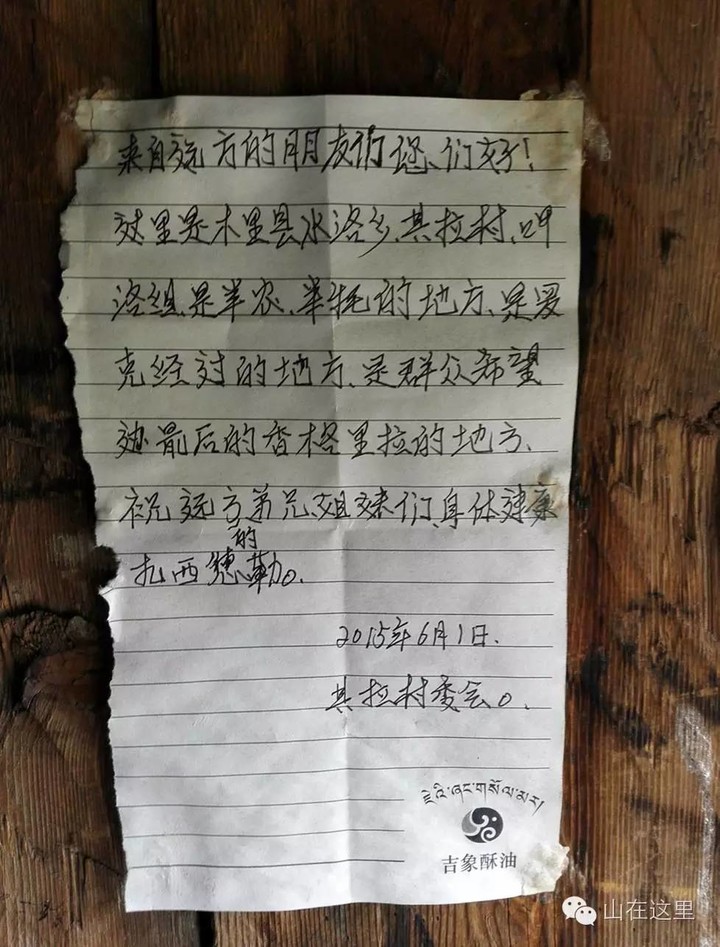 来自远方的朋友们您们好!
这里是木里县水洛乡、其拉村、呷
洛组、是半农、半牧的地方、是爱
克经过的地方、是群众希望
迹最后的香格里拉的地方、
祝远方的弟兄姐妹们、身体健康
扎西德勒。
2015年6月1日.
其拉村委会。
吉象酥油
山在这里